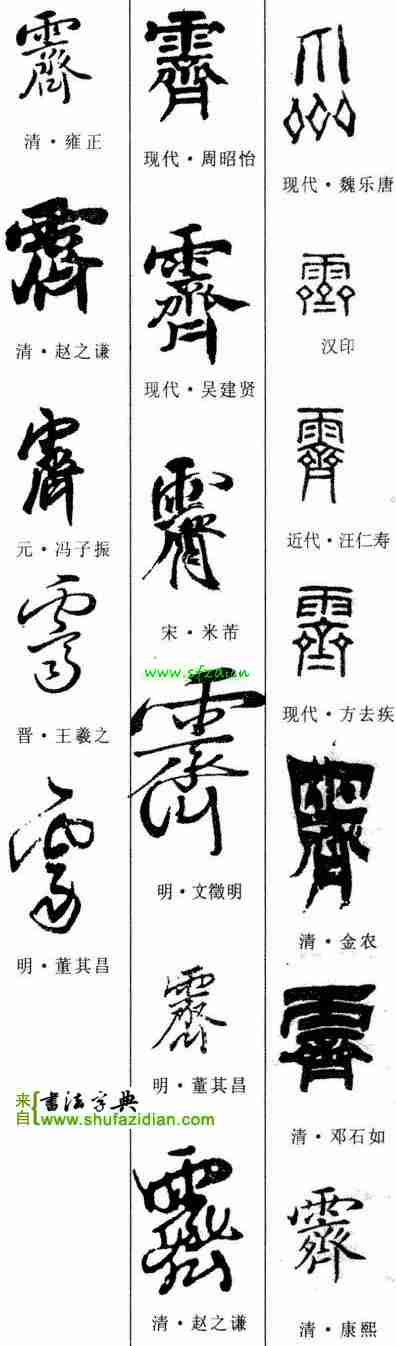 霽
现代·魏乐唐
霽
汉印
霽
近代·汪仁寿
霽
现代·方去疾
霽
清·金农
霽
清·邓石如
霽
清·康熙
霽
现代·周昭怡
霽
现代·吴建贤
霽
宋·米芾
www.sfzd.cn
霽
明·文徵明
霽
明·董其昌
霽
清·赵之谦
霽
清·雍正
霽
清·赵之谦
霽
元·冯子振
霽
晋·王羲之
霽
明·董其昌
来自 书法字典
www.shufazidian.com